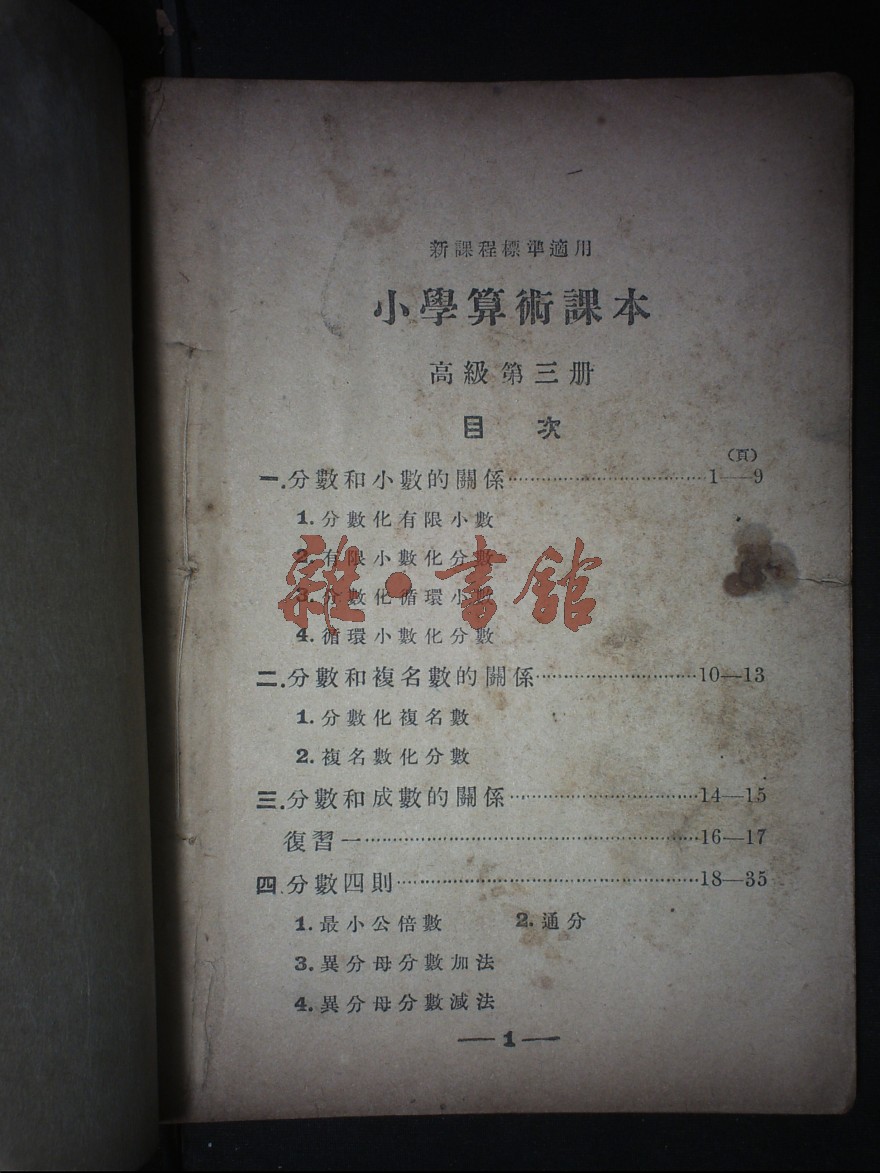 新課程標準適用
小學算術課本
高級第三册
目 次
(頁)
一.分數和小數的關係……1—9
1.分數化有限小數
2.有限小數化分數
3.分數化循環小數
4.循環小數化分數
雜·書館
二.分數和複名數的關係……10—13
1.分數化複名數
2.複名數化分數
三.分數和成數的關係……14—15
復習一……16—17
四.分數四則……18—35
1.最小公倍數 2.通分
3.異分母分數加法
4.異分母分數減法
—1—